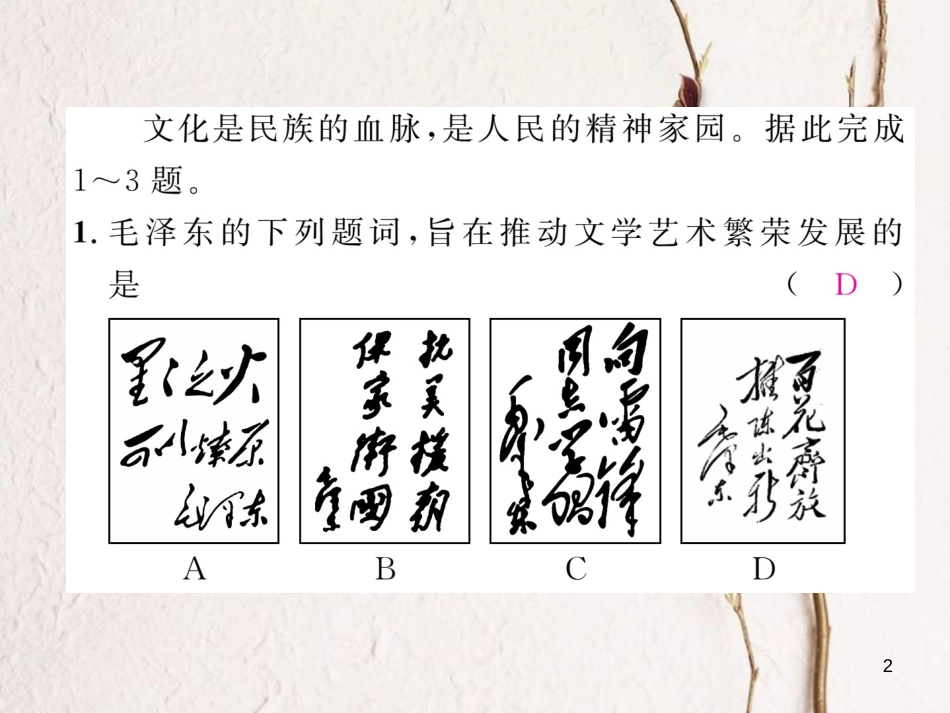 文化是民族的血脉，是人民的精神家园。据此完成
1～3 题。
1. 毛泽东的下列题词，旨在推动文学艺术繁荣发展的
是 （ D ）
星星之火
可以燎原
毛泽东
抗美援朝
保家卫国
毛泽东
向雷锋
同志学习
毛泽东
百花齐放
推陈出新
毛泽东
A B C D
2